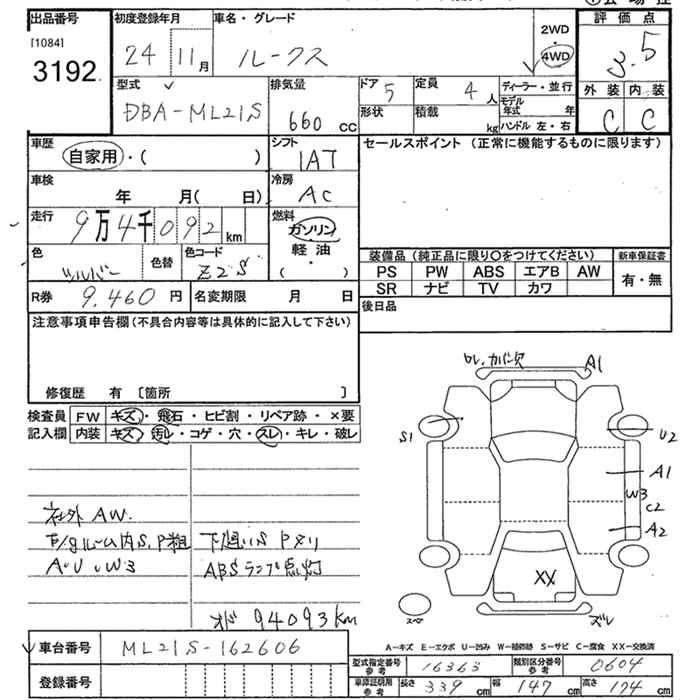 出品番号
[1084]
3192
初度登録年月
24 11月
車名・グレード
ルークス
2WD
・
4WD
評価点
3.5
外装 内装
C C
型式
DBA-ML21S
排気量
660 cc
ドア 5
形状
定員 4 人
積載 kg
ディーラー・並行
モデル年式 年
ハンドル 左・右
車歴
自家用・( )
シフト
IAT
車検
年 月( 日)
冷房
AC
走行
9万4千092 km
燃料
ガソリン
軽油
・
( )
色
シルバー
色替
色コード
Z2S
R券 9,460 円
名変期限 月 日
セールスポイント (正常に機能するものに限ります)
装備品 (純正品に限り〇をつけてください)
新車保証書
PS PW ABS エアB AW
SR ナビ TV カワ
有・無
後日品
注意事項申告欄(不具合内容等は具体的に記入して下さい)
修復歴 有 〔箇所 〕
検査員
記入欄
FW キズ・飛石・ヒビ割・リペア跡・×要
内装 キズ・汚レ・コゲ・穴・スレ・キレ・破レ
社外AW.
A・U・W3
ABSランプ点灯
94093km
A1
S1
U2
A1
W3
C2
A2
XX
スペア
ズレ
A-キズ E-エクボ U-凹み W-補修跡 S-サビ C-腐食 XX-交換済
車台番号 ML21S-162606
登録番号
型式指定番号
参考
16363
類別区分番号
参考
0604
車庫証明用
参考
長さ 339 cm 幅 147 cm 高さ 174 cm